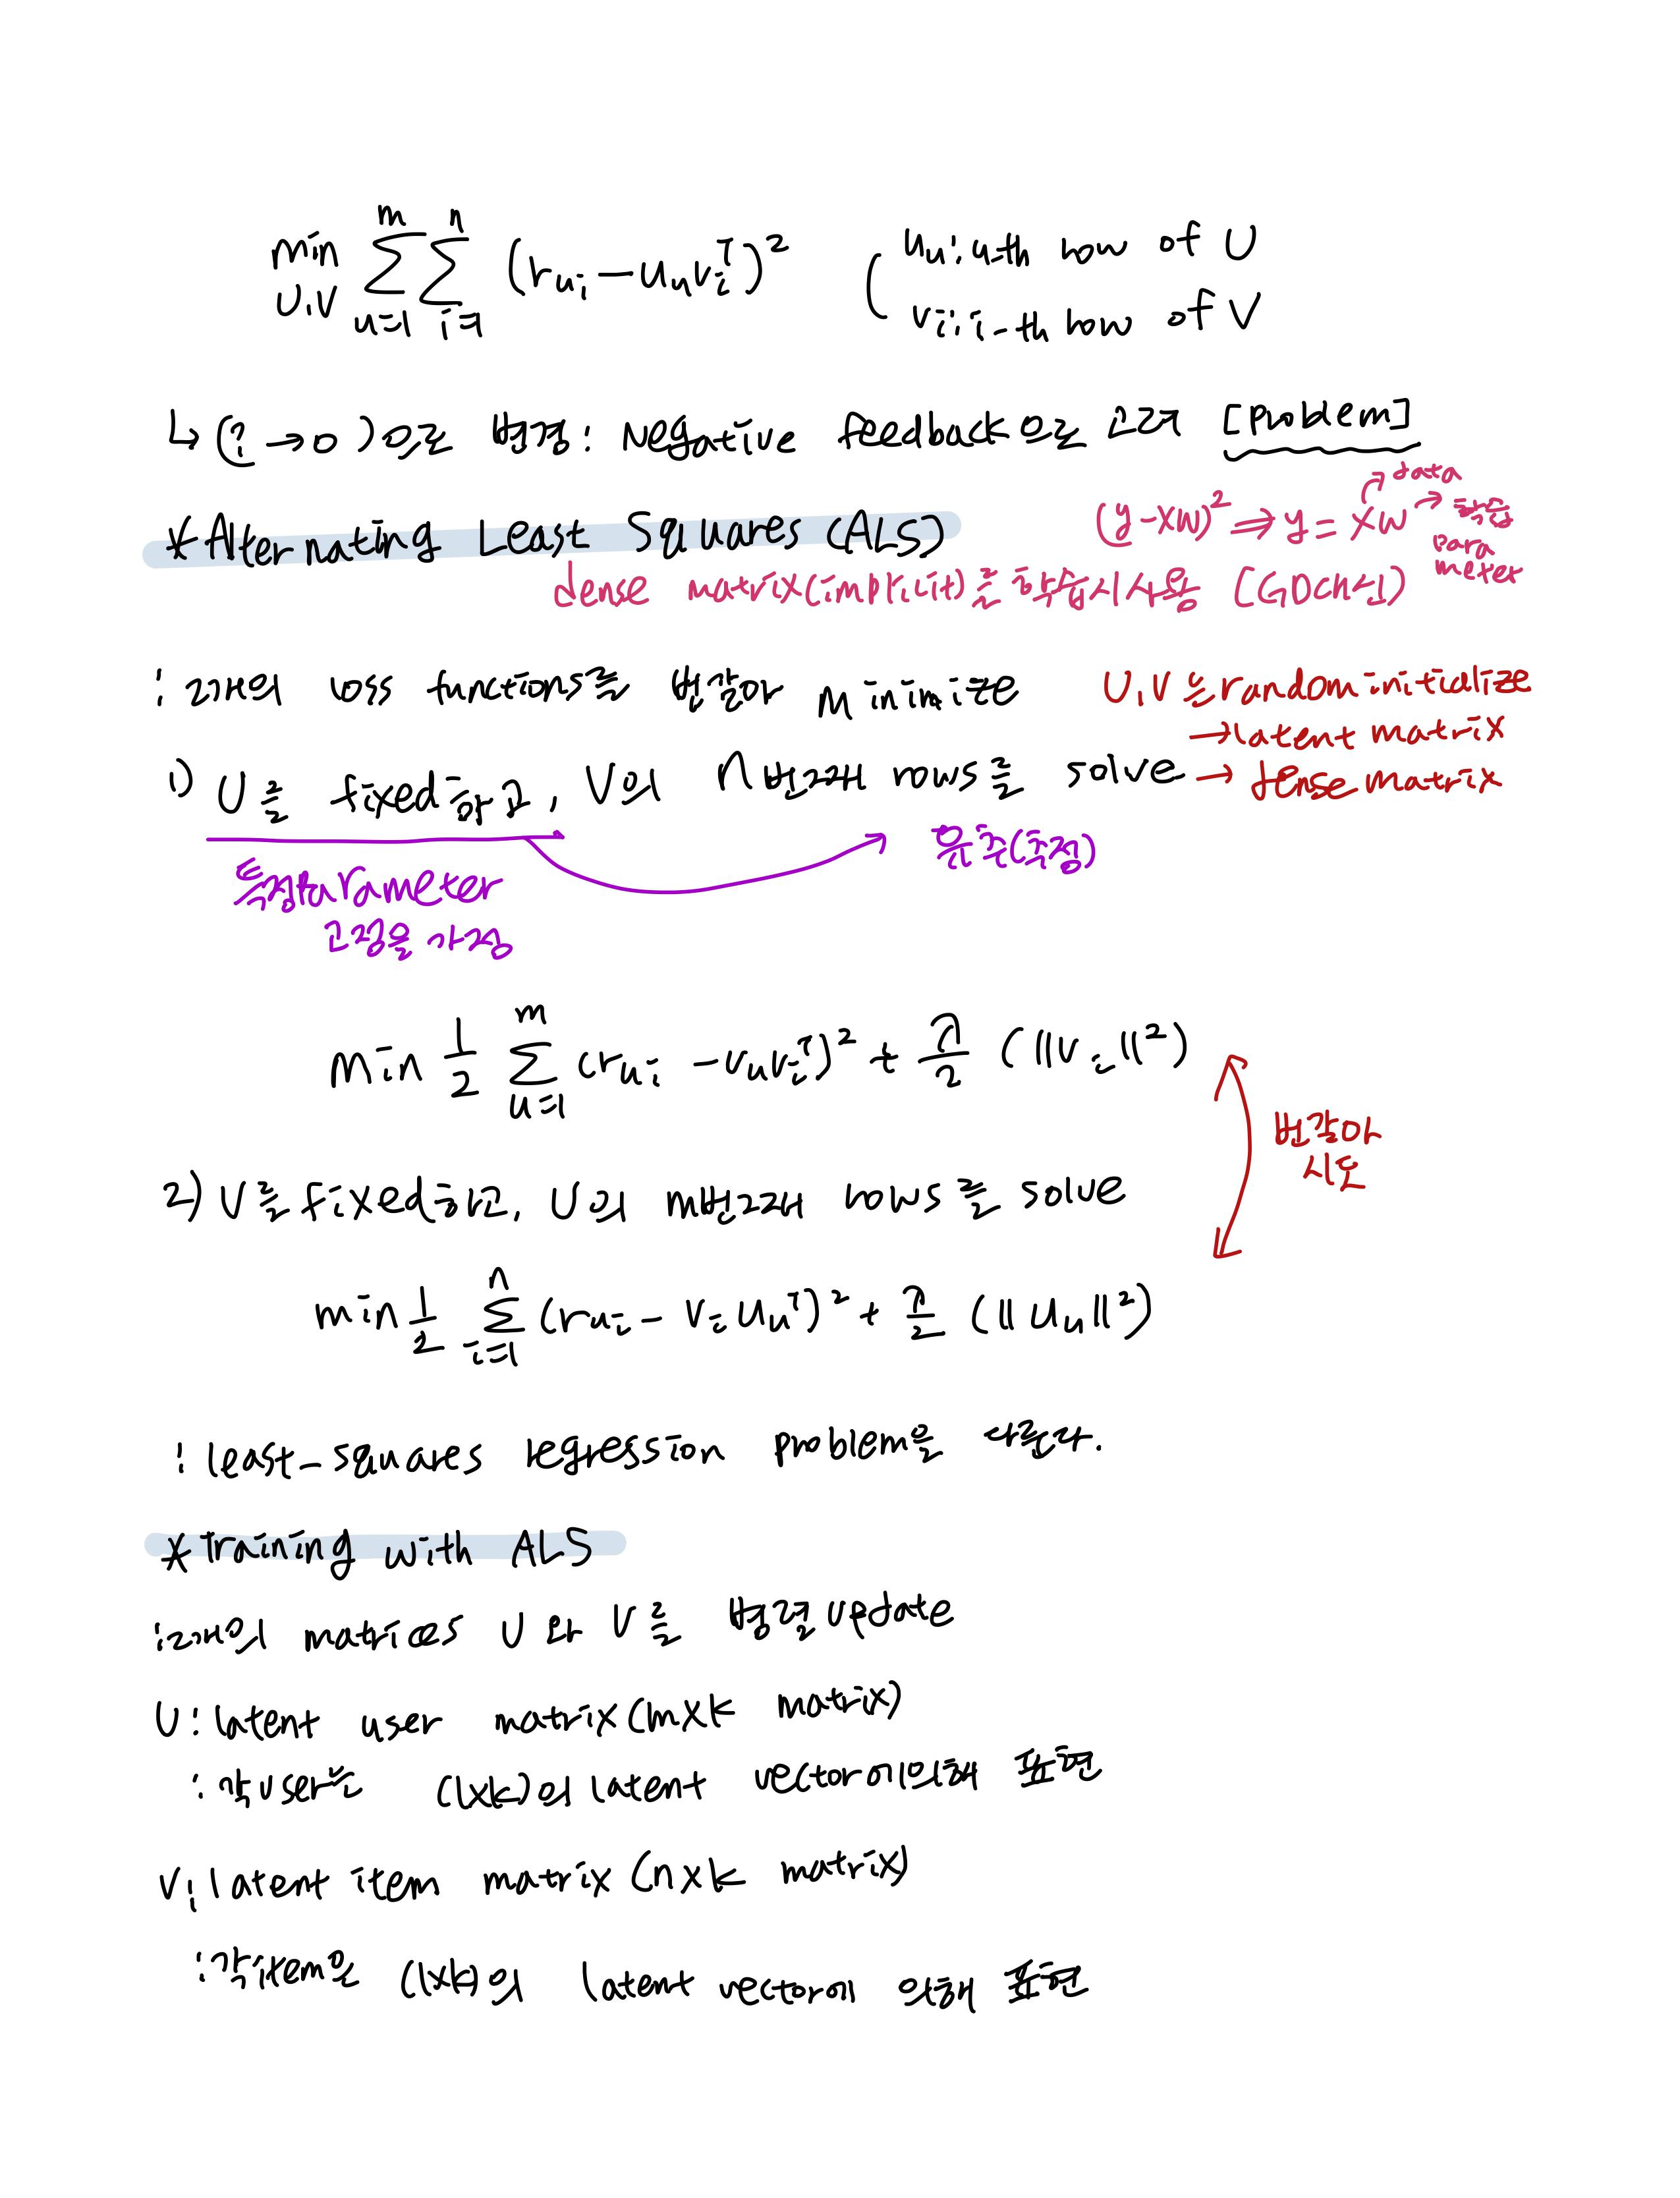 min U,V Σ_{u=1}^{m} Σ_{i=1}^{n} (r_{ui} - u_u v_i^T)^2
( u_u : u-th row of U
v_i : i-th row of V
↳ (? → 0)으로 변경 : Negative feedback으로 고려 [problem]
*Alternating Least Squares (ALS)
(y-XW)^2 ⇒ y = XW
→ data
→ 학습
para
meter
dense matrix(implicit)를 학습시 사용 (GD대신)
: 2개의 loss functions를 번갈아 minimize
U, V는 random initialize
→ latent matrix
→ dense matrix
1) U를 fixed하고, V의 n번째 rows를 solve
특정 parameter
고정을 가정
유추(추정)
min 1/2 Σ_{u=1}^{m} (r_{ui} - v_u v_i^T)^2 + λ/2 (||v_i||^2)
번갈아
시도
2) V를 fixed하고, U의 m번째 rows를 solve
min 1/2 Σ_{i=1}^{n} (r_{ui} - v_i u_u^T)^2 + λ/2 (||u_u||^2)
: least-squares regression problem을 다룬다.
*Training with ALS
: 2개의 matrices U와 V를 병렬 update
U : latent user matrix (m×k matrix)
: 각 user는 (1×k)의 latent vector에 의해 표현
V : latent item matrix (n×k matrix)
: 각 item은 (1×k)의 latent vector에 의해 표현